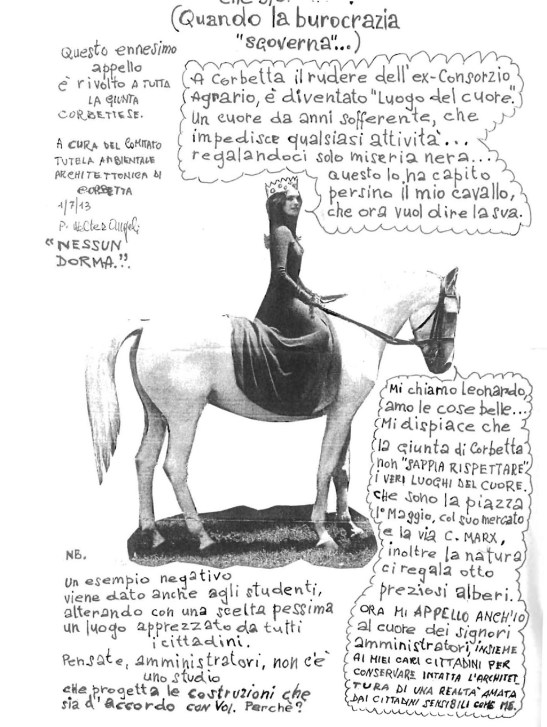 (Quando la burocrazia
"sgoverna"...)
Questo ennesimo
appello
è rivolto A TUTTA
LA GIUNTA
CORBETTESE.
A CURA DEL COMITATO
TUTELA AMBIENTALE
ARCHITETTONICA DI
CORBETTA
1/7/13
"NESSUN
DORMA.".
A Corbetta il rudere dell'ex-Consorzio
Agrario, è diventato "Luogo del cuore".
Un cuore da anni sofferente, che
impedisce qualsiasi attività...
regalandoci solo miseria nera...
questo lo ha capito
persino il mio cavallo,
che ora vuol dire la sua.
Mi chiamo leonardo,
amo le cose belle...
Mi dispiace che
la giunta di Corbetta
non "SAPPIA RISPETTARE"
i VERI LUOGHI DEL CUORE.
che sono la piazza
1° Maggio, col suo mercato
e la via C. MARX,
inoltre la natura
ci regala otto
preziosi alberi.
ORA MI APPELLO ANCH'IO
al cuore dei signori
amministratori, INSIEME
AI MIEI CARI CITTADINI PER
CONSERVARE INTATTA L'ARCHITET-
TURA DI UNA REALTA' AMATA
DAI CITTADINI SENSIBILI COME ME.
NB.
Un esempio negativo
viene dato anche agli studenti,
alterando con una scelta pessima
un luogo apprezzato da tutti
i cittadini.
Pensate, amministratori, non c'è
uno studio
che progetta le costruzioni che
sia d'accordo con Voi. Perchè?